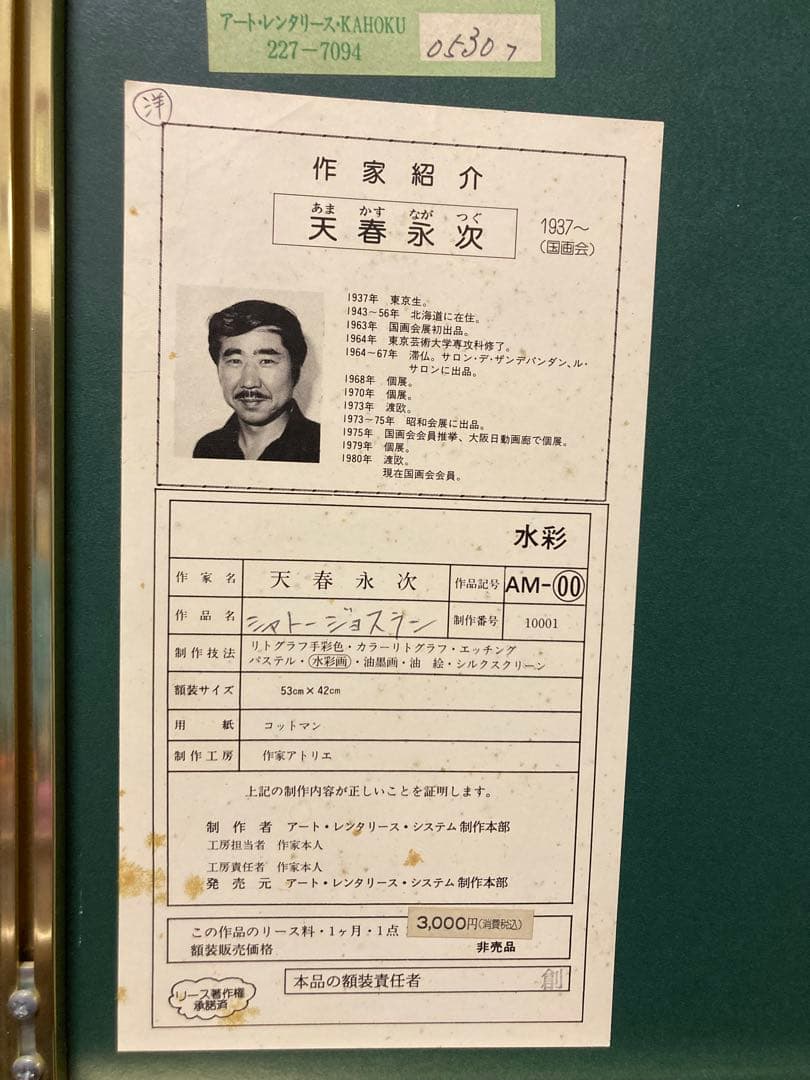 アート・レンタリース・KAHOKU
227-7094
05307
洋
作家紹介
あま かす なが つぐ
天春永次
1937〜
(国画会)
1937年 東京生。
1943〜56年 北海道に在住。
1963年 国画会展初出品。
1964年 東京芸術大学専攻科修了。
1964〜67年 滞仏。サロン・デ・ザンデパンダン、ル・
サロンに出品。
1968年 個展。
1970年 個展。
1973年 渡欧。
1973〜75年 昭和会展に出品。
1975年 国画会会員推挙、大阪日動画廊で個展。
1979年 個展。
1980年 渡欧。
現在国画会会員。
水彩
作家名 天春永次 作品記号 AM-00
作品名 シャトージョスラン 制作番号 10001
制作技法 リトグラフ手彩色・カラーリトグラフ・エッチング
パステル・水彩画・油墨画・油 絵・シルクスクリーン
額装サイズ 53cm×42cm
用紙 コットマン
制作工房 作家アトリエ
上記の制作内容が正しいことを証明します。
制作者 アート・レンタリース・システム制作本部
工房担当者 作家本人
工房責任者 作家本人
発売元 アート・レンタリース・システム制作本部
この作品のリース料・1ヶ月・1点 3,000円(消費税込)
額装販売価格 非売品
本品の額装責任者 創
リース著作権
承諾済